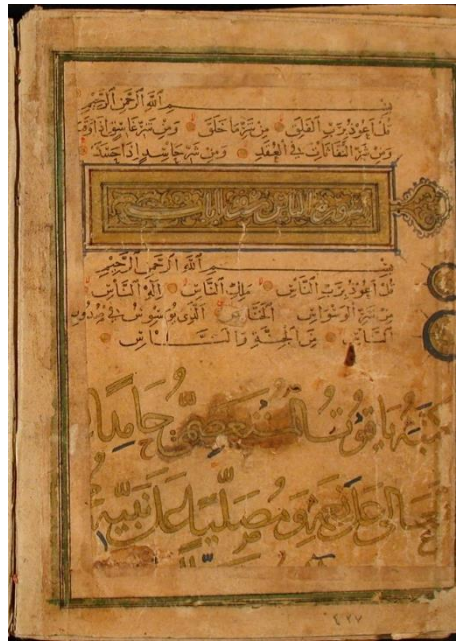 بسم الله الرحمن الرحيم
قل اعوذ برب الفلق من شر ما خلق ومن شر غاسق اذا وقب
ومن شر النفاثات في العقد ومن شر حاسد اذا حسد
سورة الناس ست ايات
بسم الله الرحمن الرحيم
قل اعوذ برب الناس ملك الناس اله الناس
من شر الوسواس الخناس الذي يوسوس في صدور
الناس من الجنة والناس
كتبه ياقوت المستعصمي حامدا
على نعمه ومصليا على نبيه
٢٢٧